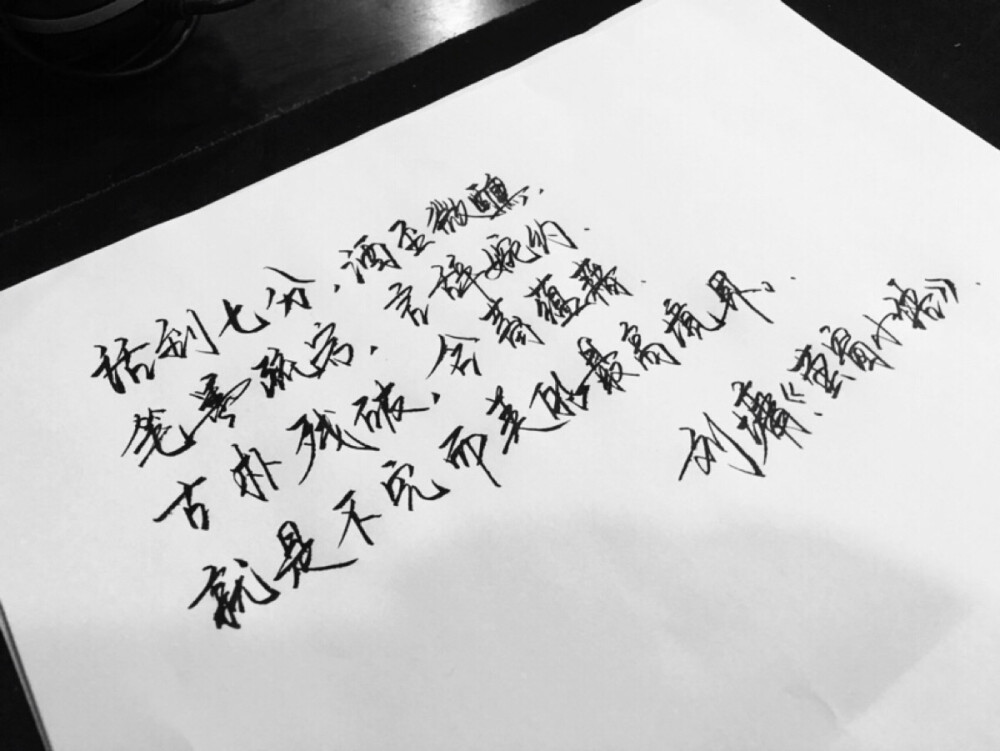 话到七分，酒至微醺．
笔墨疏宕，言辞婉约．
古朴残破，含蓄蕴藉．
就是不完而美的最高境界。
刘墉《萤窗小语》．